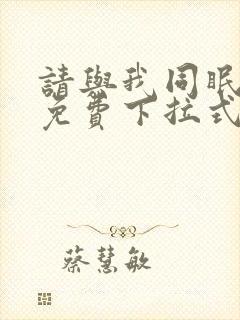 請與我同眠
免費下拉式
蔡慧敏